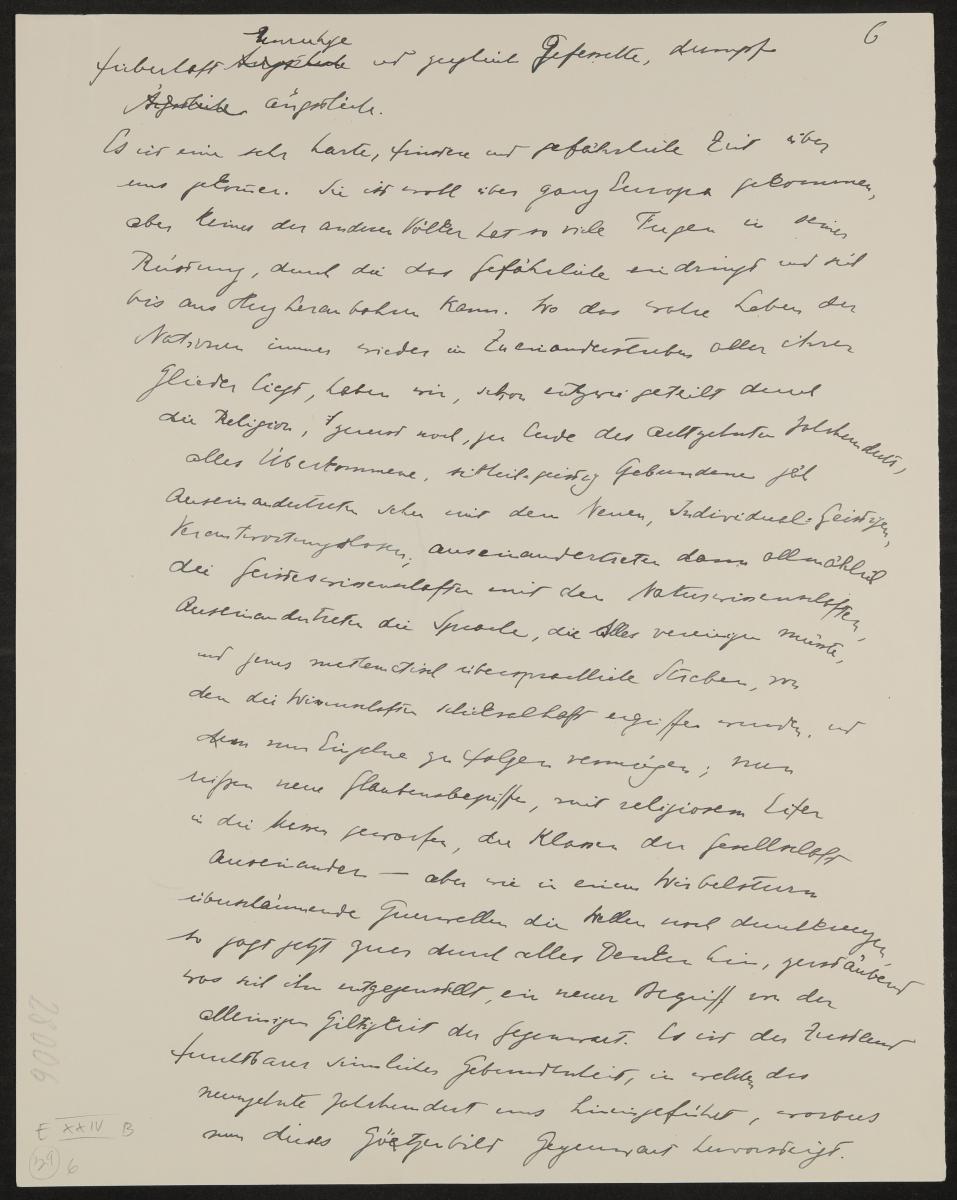 6
Unruhige
fieberhaft Ängstliche und zugleich Gefesselte, dumpf
Ängstliche ängstlich.
Es ist eine sehr harte, finstere und gefährliche Zeit über
uns gekommen. Sie ist wohl über ganz Europa gekommen,
aber keines der anderen Völker hat so viele Fugen in seiner
Rüstung, durch die das Gefährliche eindringt und sich
bis ans Herz heranbohren kann. Wo das wahre Leben der
Nationen immer wieder im Zueinanderstreben aller ihrer
Glieder liegt, haben wir, schon entzwei geteilt durch
die Religion, zuerst noch, zu Ende des achtzehnten Jahrhunderts,
alles Überkommene, sittlich-geistig Gebundene jäh
Auseinandertreten sehen mit dem Neuen, Individual-Geistigen,
Verantwortungslosen; auseinandertreten dann allmählich
die Geisteswissenschaften mit den Naturwissenschaften,
Auseinandertreten die Sprache, die Alles vereinigen müsste,
und jenes mathematisch übersprachliche Streben, von
dem die Wissenschaften schicksalhaft ergriffen wurden, und
dem nur Einzelne zu folgen vermögen; nun
reissen neue Glaubensbegriffe, mit religiosem Eifer
in die Massen geworfen, die Klassen der Gesellschaft
auseinander — aber wie in einem Wirbelsturm
überschäumende Querwellen die Wellen noch durchkreuzen,
so jagt jetzt quer durch alles Denken hin, zerstäubend
was sich ihm entgegenstellt, ein neuer Begriff von der
alleinigen Giltigkeit der Gegenwart. Es ist der Zustand
furchtbarer sinnlicher Gebundenheit, in welchen das
neunzehnte Jahrhundert uns hineingeführt, woraus
nun dieses Götzenbild Gegenwart hervorsteigt.
28006
E XXIV B
29 6